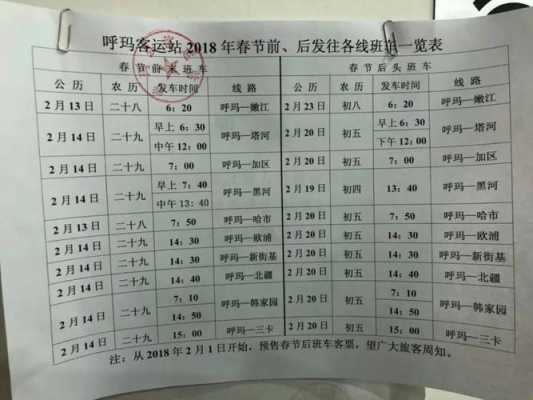 呼玛客运站2018年春节前、后发往各线班车一览表
春节前末班车 春节后头班车
公历 农历 发车时间 线路 公历 农历 发车时间 线路
2月13日 二十八 6:20 呼玛—嫩江 2月23日 初八 6:20 呼玛—嫩江
2月14日 二十九 早上6:30 呼玛—塔河 2月20日 初五 早上6:30 呼玛—塔河
中午12:00 下午12:00
2月14日 二十九 7:00 呼玛—加区 2月20日 初五 7:00 呼玛—加区
2月14日 二十九 早上7:40 呼玛—黑河 2月19日 初四 13:40 呼玛—黑河
中午13:40
2月13日 二十八 7:50 呼玛—哈市 2月20日 初五 7:50 呼玛—哈市
2月14日 二十九 14:30 呼玛—欧浦 2月20日 初五 14:30 呼玛—欧浦
2月14日 二十九 14:30 呼玛—新街基 2月20日 初五 14:30 呼玛—新街基
2月14日 二十九 14:40 呼玛—北疆 2月20日 初五 14:40 呼玛—北疆
2月14日 二十九 7:10 呼玛—韩家园 2月20日 初五 7:10 呼玛—韩家园
14:50 14:50
2月14日 二十九 15:00 呼玛—三卡 2月20日 初五 15:00 呼玛—三卡
注:从2018年2月1日开始,预售春节后班车客票,望广大旅客周知。